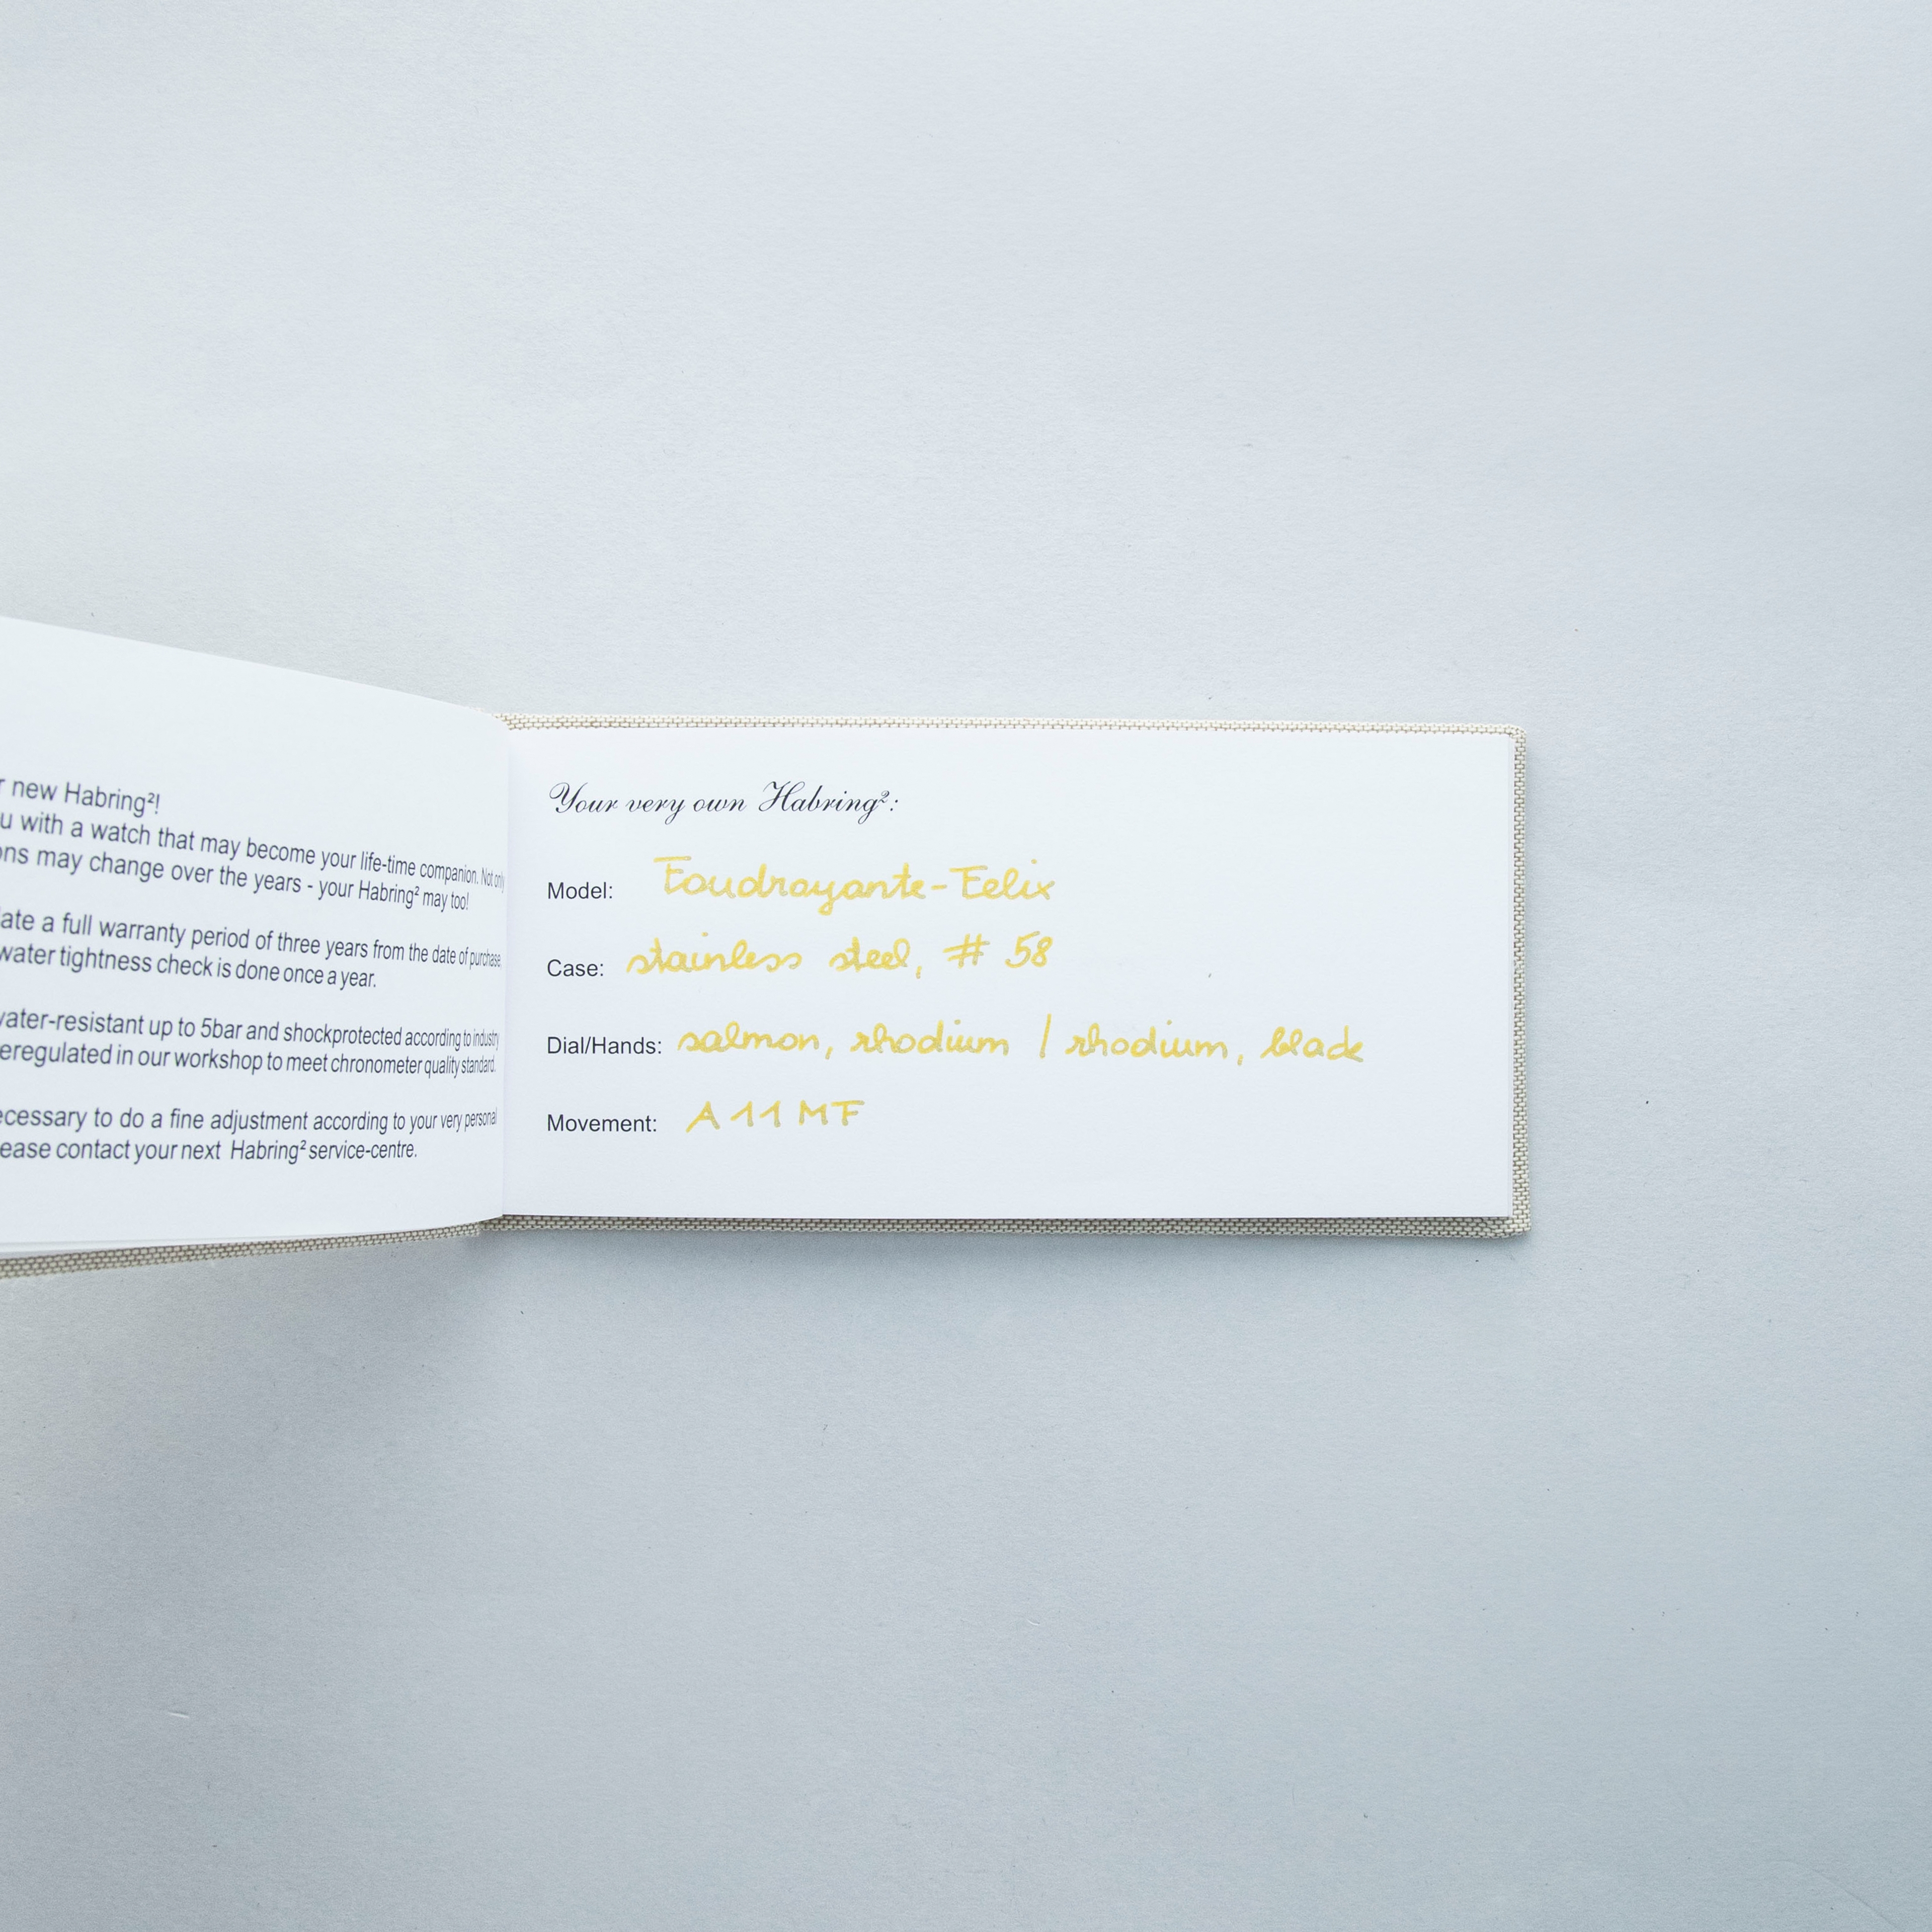 r new Habring²!
u with a watch that may become your life-time companion. Not only
ons may change over the years - your Habring² may too!
ate a full warranty period of three years from the date of purchase.
water tightness check is done once a year.
water-resistant up to 5bar and shockprotected according to industry
eregulated in our workshop to meet chronometer quality standard.
ecessary to do a fine adjustment according to your very personal
ease contact your next Habring² service-centre.
Your very own Habring²:
Model: Foudroyante-Felix
Case: stainless steel, # 58
Dial/Hands: salmon, rhodium / rhodium, blade
Movement: A11MF